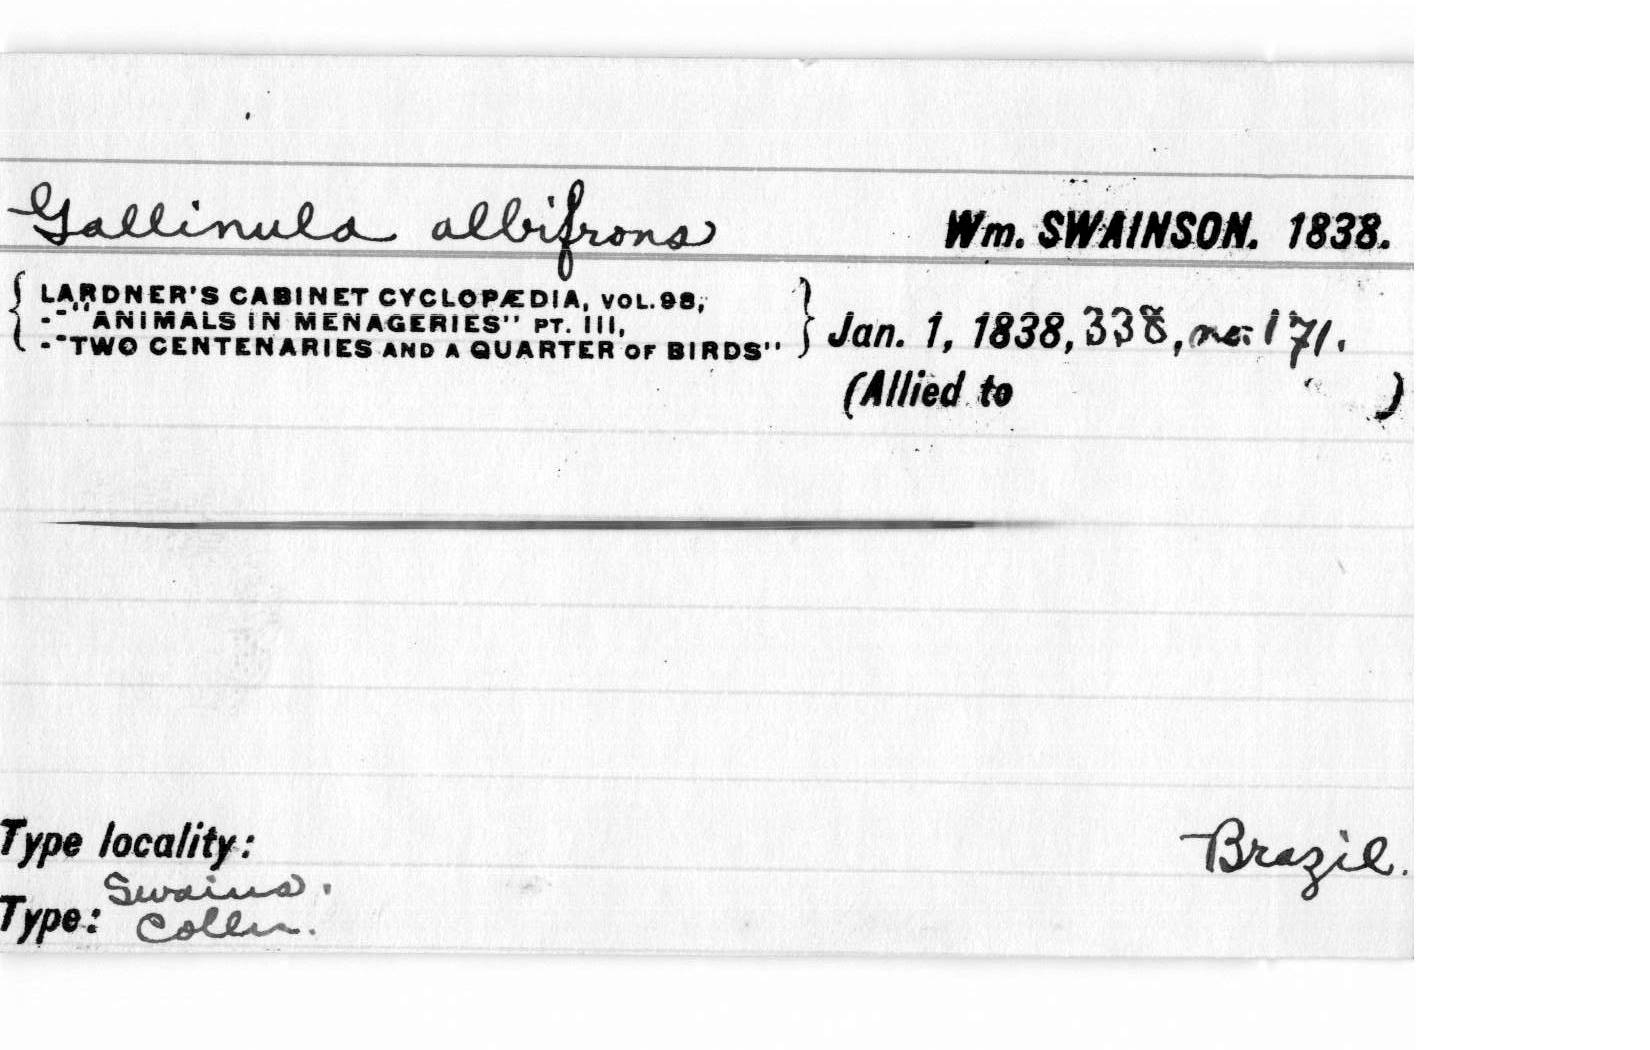 Gallinula albifrons Wm. SWAINSON. 1838.
LARDNER'S CABINET CYCLOPÆDIA, VOL. 98,
--"ANIMALS IN MENAGERIES" PT. III,
--"TWO CENTENARIES AND A QUARTER OF BIRDS"
Jan. 1, 1838, 338, no. 171.
(Allied to )
Type locality: Brazil.
Swains.
Type: Colln.